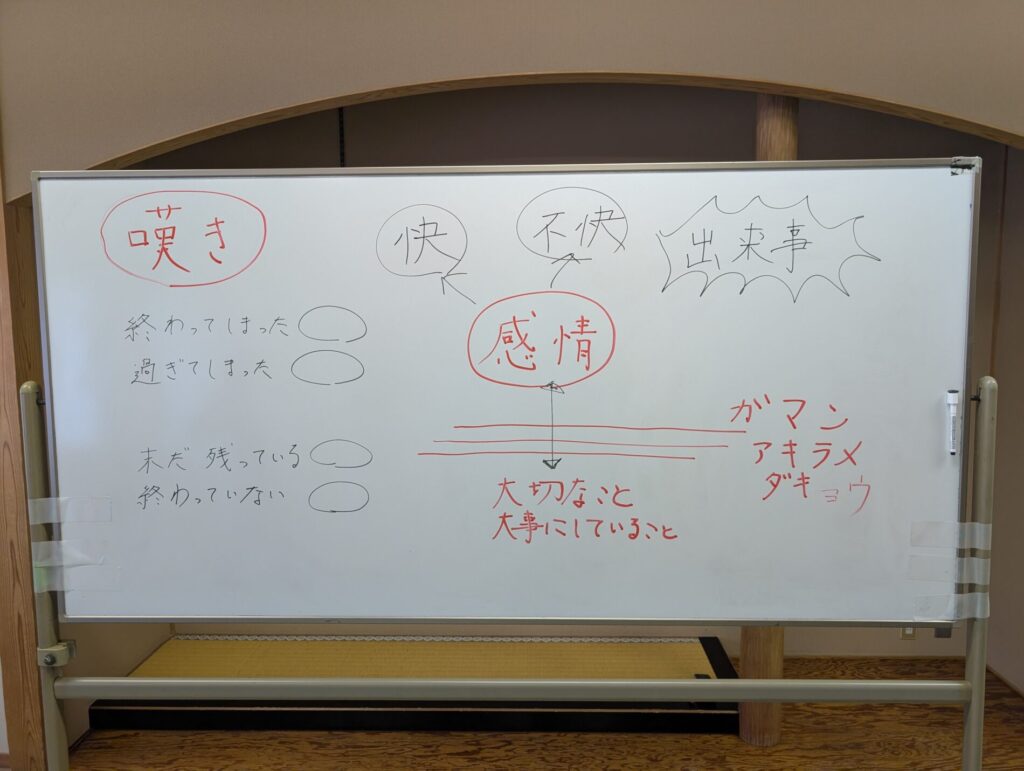 嘆き
快
不快
出来事
感情
終わってしまった
過ぎてしまった
未だ残っている
終わっていない
ガマン
アキラメ
ダキョウ
大切なこと
大事にしていること